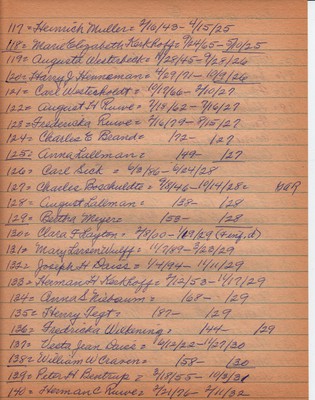 117= Heinrich Muller= 2/16/43- 4/15/25
118= Marie Elizabeth Kerkhoff= 9/24/65- 5/10/25
119= August Westerbeck= 8/28/45- 9/28/26
120= Harry J. Henneman= 4/29/71- 10/9/26
121= Carl Westerholdt= 10/17/66- 2/10/27
122= August H Ruwe= 7/18/62- 7/16/27
123= Frederuka Ruwe= 2/16/79- 8/15/27
124= Charles E Beard= /72- /27
125= Anna Lallman= /49- /27
126= Carl Sick= 2/3/86- 2/24/28
127= Charles Boschuldt= 8/9/46- 10/14/28=
128= August Lallman= /38- /28
129= Bertha Meyer= /53- /28
130= Clara F Layton= /29
131= Mary Larsen Wulff= 11/7/89- 3/23/29
132= Joseph H Daiss= 1/14/94- 1/11/29
133= Haman H Kerkhoff= 7/12/53- 11/17/29
134= Anna S Niebaum= /68- /29
135= Henry Segt= /87- /29
136= Fredricka Wilkening= /44- /29
137= Vesta Jean Daiss= 12/12/22- 1/27/30
138= William W Craven= /58- /30
139= Peter H Bentrup= 2/18/55- 10/3/31
140= Herman C Ruwe= 2/21/76- 2/11/32